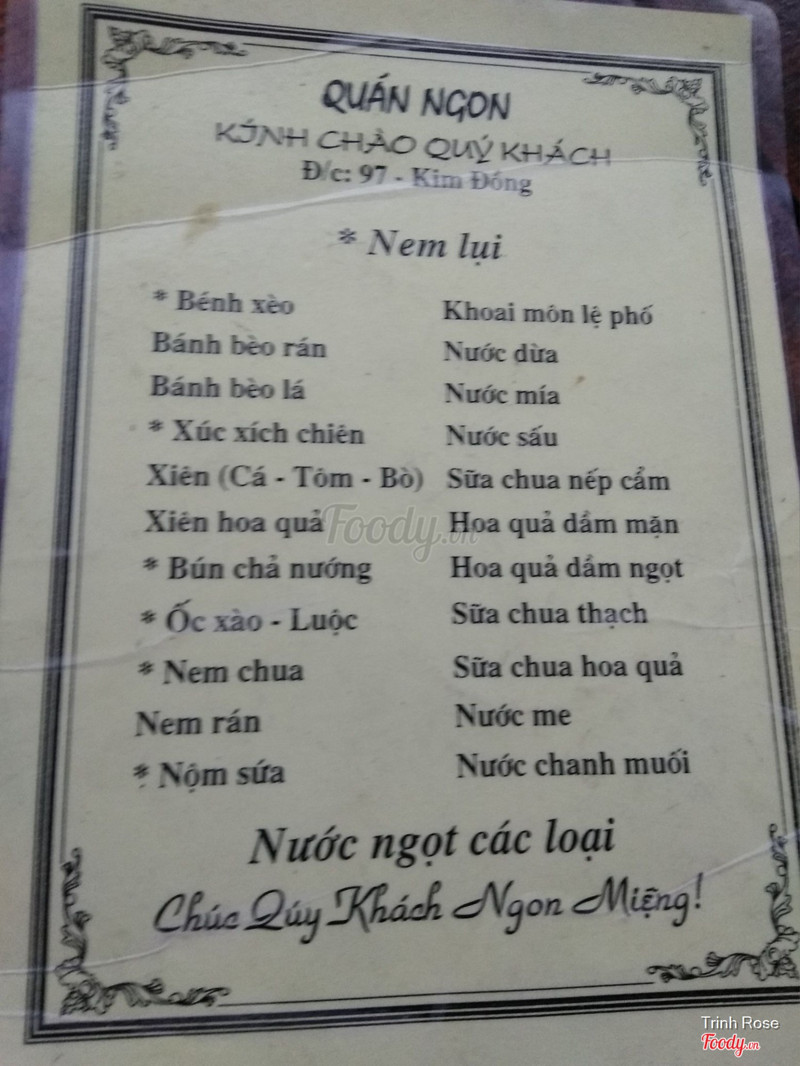 QUÁN NGON
KÍNH CHÀO QUÝ KHÁCH
Đ/c: 97 - Kim Đồng
* Nem lụi
* Bénh xèo
Bánh bèo rán
Bánh bèo lá
* Xúc xích chiên
Xiên (Cá - Tôm - Bò)
Xiên hoa quả
* Bún chả nướng
* Ốc xào - Luộc
* Nem chua
Nem rán
* Nộm sứa
Khoai môn lệ phố
Nước dừa
Nước mía
Nước sấu
Sữa chua nếp cẩm
Hoa quả dầm mặn
Hoa quả dầm ngọt
Sữa chua thạch
Sữa chua hoa quả
Nước me
Nước chanh muối
Nước ngọt các loại
Chúc Qúy Khách Ngon Miệng!
Foody.vn
Trinh Rose
Foody.vn